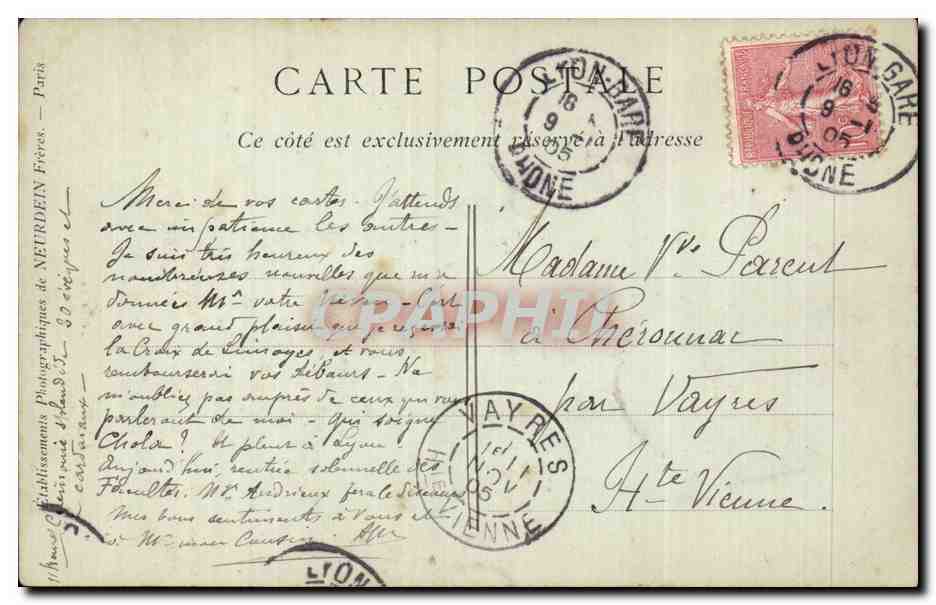 CARTE POSTALE
Ce côté est exclusivement réservé à l'adresse
Établissements Photographiques de NEURDEIN Frères. — Paris
LYON-GARE
16
9
05
RHONE
LYON-GARE
16
9
05
RHONE
Merci de vos cartes. J'attends
avec impatience les autres —
Je suis très heureux des
nombreuses nouvelles que m'a
données Mr votre
avec grand plaisir que je
la Croix de Limoges, et vous
rembourserai vos débours — Ne
m'oubliez pas auprès de ceux qui vous
parleront de moi — qui soigne
Chola? Il pleut à Lyon
Aujourd'hui, rentrée solennelle des
Facultés. Mr Andrieux fera le
Mes bons sentiments à vous et
à Mr mon Cousin.
cérémonie splendide 30 évêques et
cardinaux —
Madame Vve Parent
à Chéronnac
par Vayres
Hte Vienne
CPAPHIL
VAYRES
05
HTE VIENNE
LYON